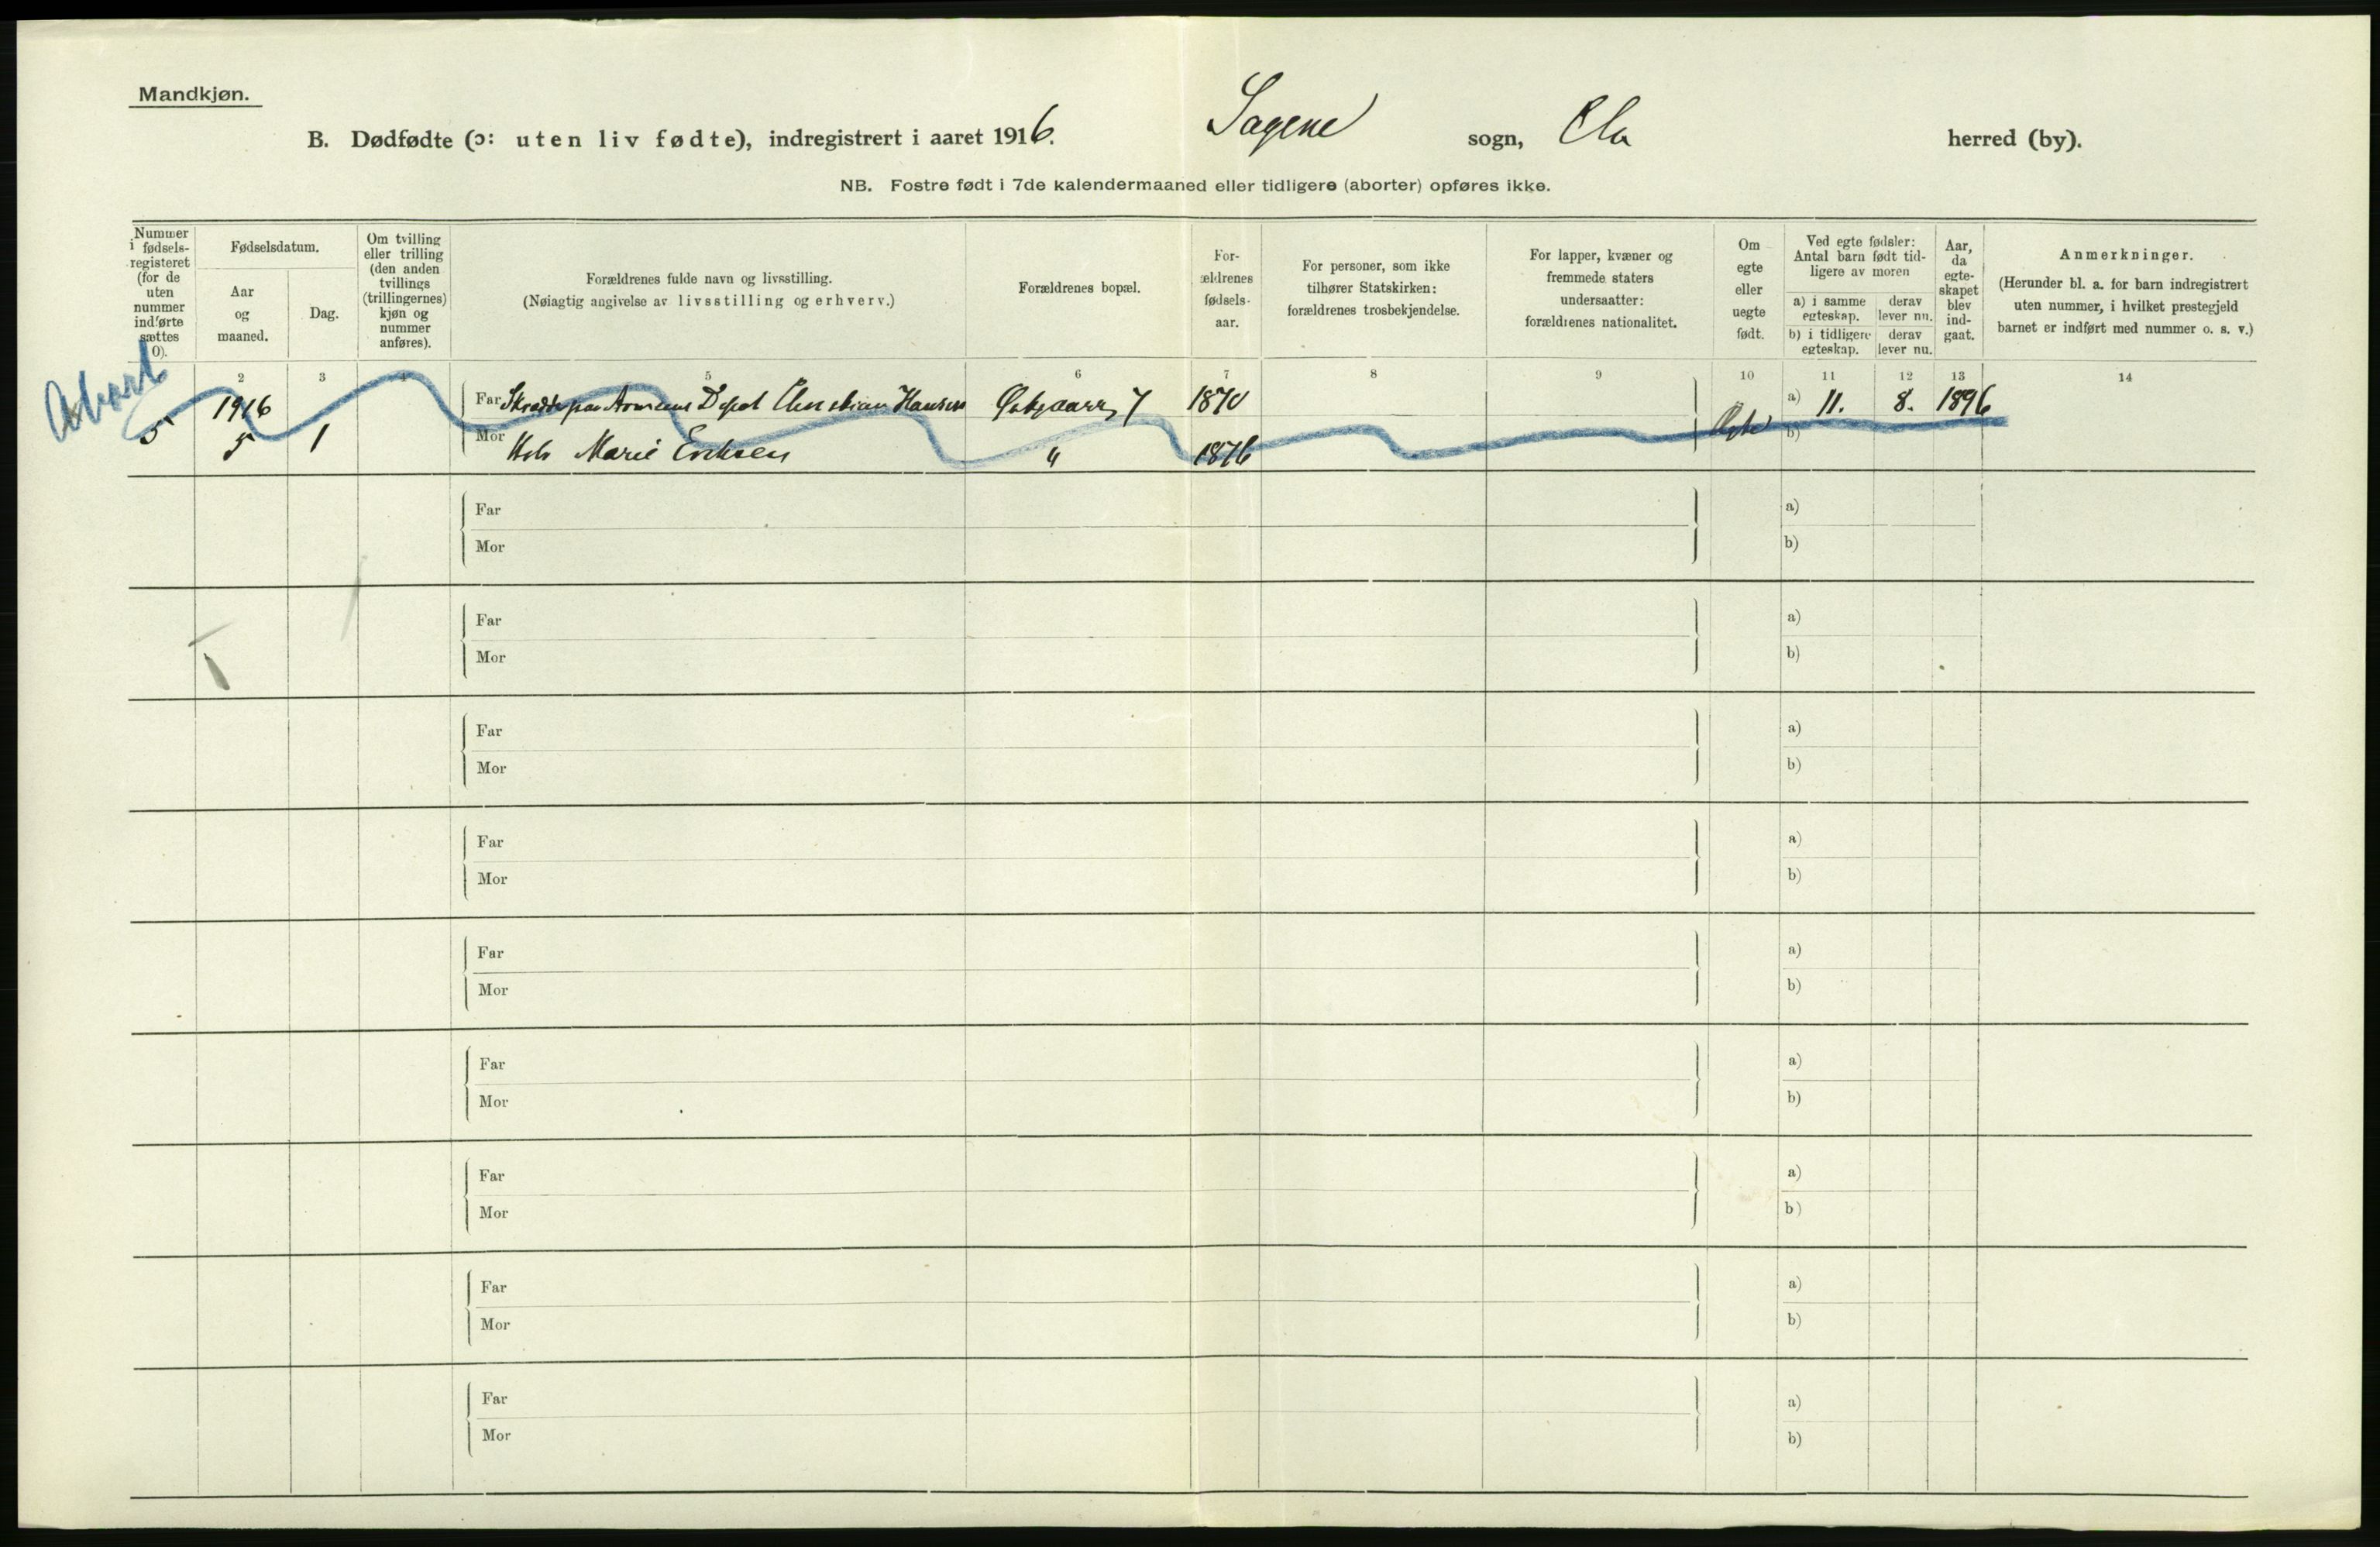 Mandkjøn.
B. Dødfødte (ɔ: uten liv fødte), indregistrert i aaret 1916. Sagene sogn, Kra herred (by).
NB. Fostre født i 7de kalendermaaned eller tidligere (aborter) opføres ikke.
Nummer
i fødsels-
registeret
(for de
uten
nummer
indførte
sættes
0).
Fødselsdatum.
Aar
og
maaned.
Dag.
Om tvilling
eller trilling
(den anden
tvillings
(trillingernes)
kjøn og
nummer
anføres).
Forældrenes fulde navn og livsstilling.
(Nøiagtig angivelse av livsstilling og erhverv.)
Forældrenes bopæl.
For-
ældrenes
fødsels-
aar.
For personer, som ikke
tilhører Statskirken:
forældrenes trosbekjendelse.
For lapper, kvæner og
fremmede staters
undersaatter:
forældrenes nationalitet.
Om
egte
eller
uegte
født.
Ved egte fødsler:
Antal barn født tid-
ligere av moren
a) i samme
egteskap.
derav
lever nu.
b) i tidligere
egteskap.
derav
lever nu.
Aar,
da
egte-
skapet
blev
ind-
gaat.
Anmerkninger.
(Herunder bl. a. for barn indregistrert
uten nummer, i hvilket prestegjeld
barnet er indført med nummer o. s. v.)
2 3 4 5 6 7 8 9 10 11 12 13 14
Abort
5 1916 5 1
Far Christian Hansen 7 1870
Mor Marie Eriksen " 1876
Egte a) 11. 8. 1896
b)
Far a)
Mor b)
Far a)
Mor b)
Far a)
Mor b)
Far a)
Mor b)
Far a)
Mor b)
Far a)
Mor b)
Far a)
Mor b)
Far a)
Mor b)
Far a)
Mor b)